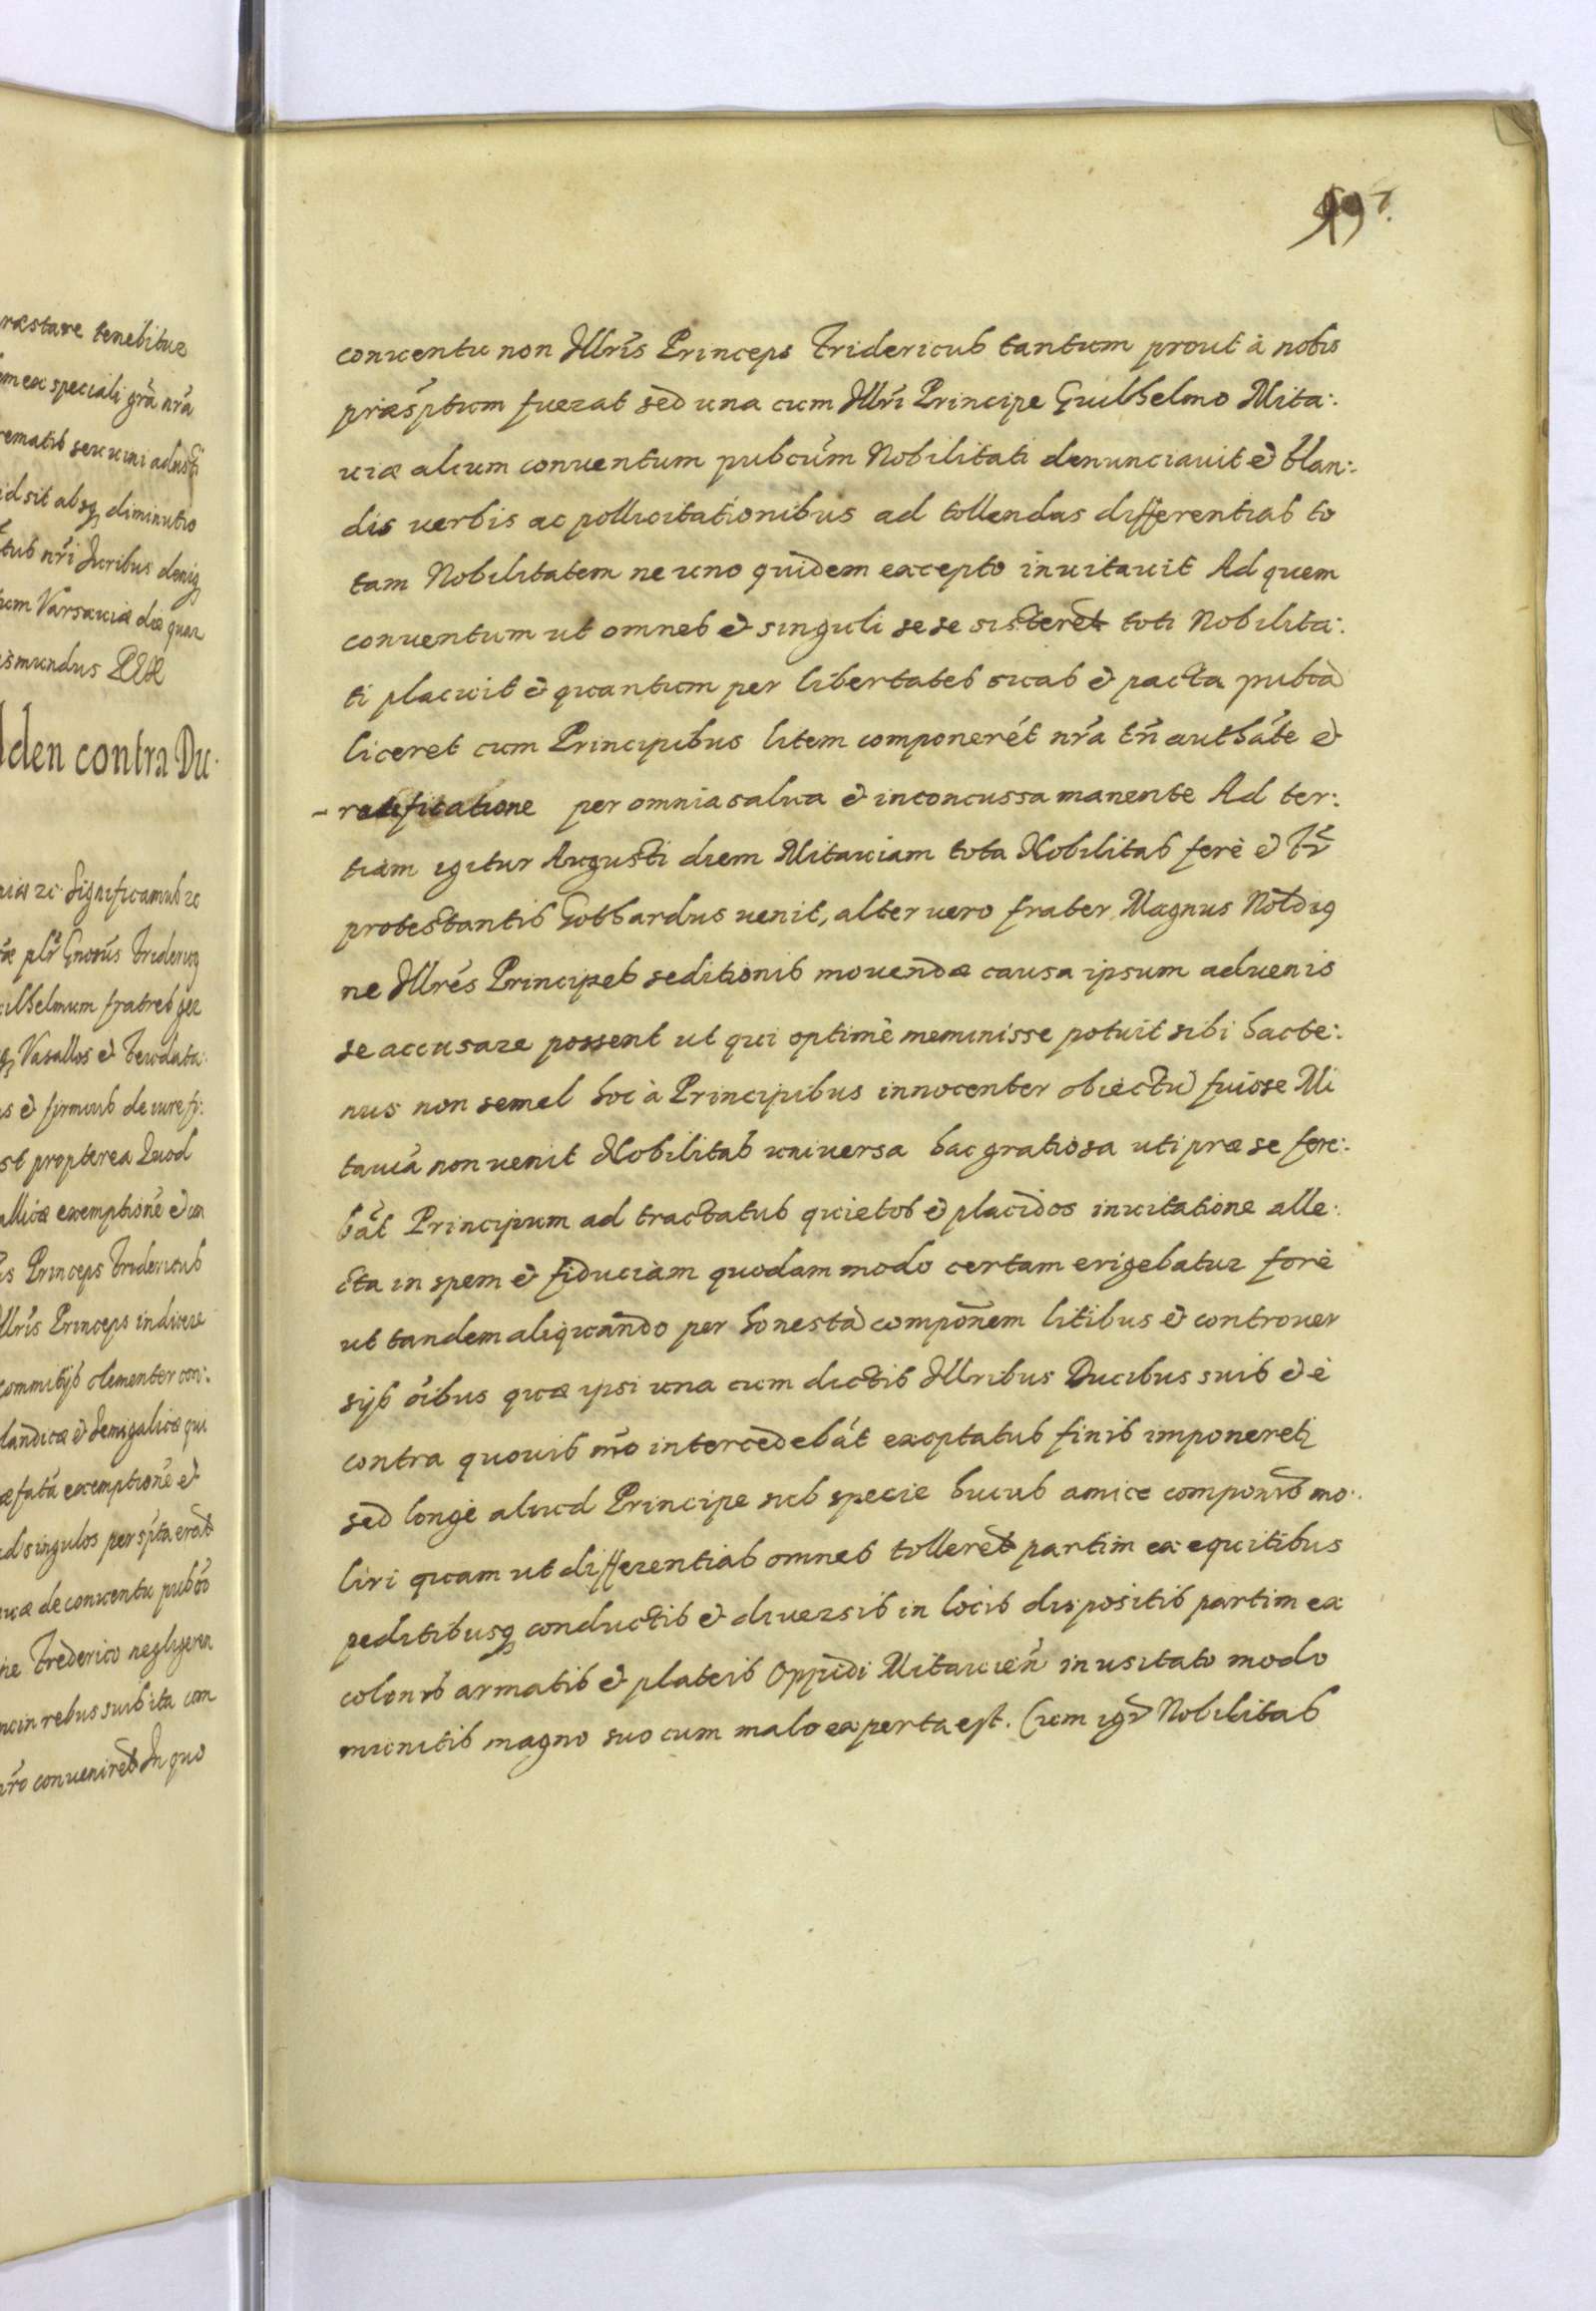 ræstare tenebitur
ex speciali grã nrã
id sit absq diminutio
nrĩ Juribus deniq
Varsauiæ die quar
ismundus Rex
den contra Du
Significamus
Guilhelmum fratres
Vasallos et feudata
et firmius de iure
propterea Quod
exemptionẽ et
Princeps Fridericus
Illris Princeps indicere
commitijs clementer con:
landicæ et Semigaliæ qui
æfatã exemptionẽ et
singulos perscripta erat
de conuentu pubco
Frederico negligeren
in rebus suis ita com
nrõ conuenirẽt In quo
conuentu non Illris Princeps Fridericus tantum prout à nobis
præscptum fuerat sed una cum Illri Principe Guilhelmo Mita:
uiæ alium conuentum pubcum Nobilitati denunciauit et blan:
dis uerbis ac pollicitationibus ad tollendas differentias to
tam Nobilitatem ne uno quidem excepto inuitauit Ad quem
conuentum ut omnes et singuli sese sisterẽt toti Nobilita:
ti placuit et quantum per libertates suas et pacta pubca
liceret cum Principibus litem componerẽt nrã tñ authãte et
- ratificatione per omnia salua et inconcussa manente Ad ter:
tiam igitur Augusti diem Mitauiam tota Nobilitas ferè et fr
protestantis Gothardus uenit, alter uero frater Magnus Noldiq
ne Illres Principes seditionis mouendæ causa ipsum aduenis
se accusare possent ut qui optimè meminisse potuit sibi hacte:
nus non semel hoc à Principibus innocenter obiectũ fuisse Mi
tauiã non uenit Nobilitas uniuersa hac gratiosa uti præ se fere:
bãt Principum ad tractatus quietos et placidos inuitatione alle:
cta in spem et fiduciam quodammodo certam erigebatur forè
ut tandem aliquando per honestã compõnem litibus et controuer
sijs õibus quæ ipsi una cum dictis Illribus Ducibus suis et è
contra quouis mõ intercedebãt exoptatus finis imponeretq
sed longè aliud Principe sub specie huius amicæ componis mo:
liri quam ut differentias omnes tollerẽt partim ex equitibus
peditibusq conductis et diuersis in locis dispositis partim ex
colonis armatis et plateis Oppidi Mitauieñ inusitato modo
munitis magno suo cum malo experta est. Cum igr Nobilitas